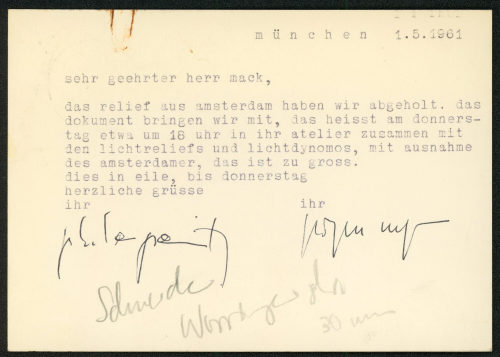 münchen 1.5.1961
sehr geehrter herr mack,
das relief aus amsterdam haben wir abgeholt. das
dokument bringen wir mit, das heisst am donners-
tag etwa um 18 uhr in ihr atelier zusammen mit
den lichtreliefs und lichtdynomos, mit ausnahme
des amsterdamer, das ist zu gross.
dies in eile, bis donnerstag
herzliche grüsse
ihr ihr